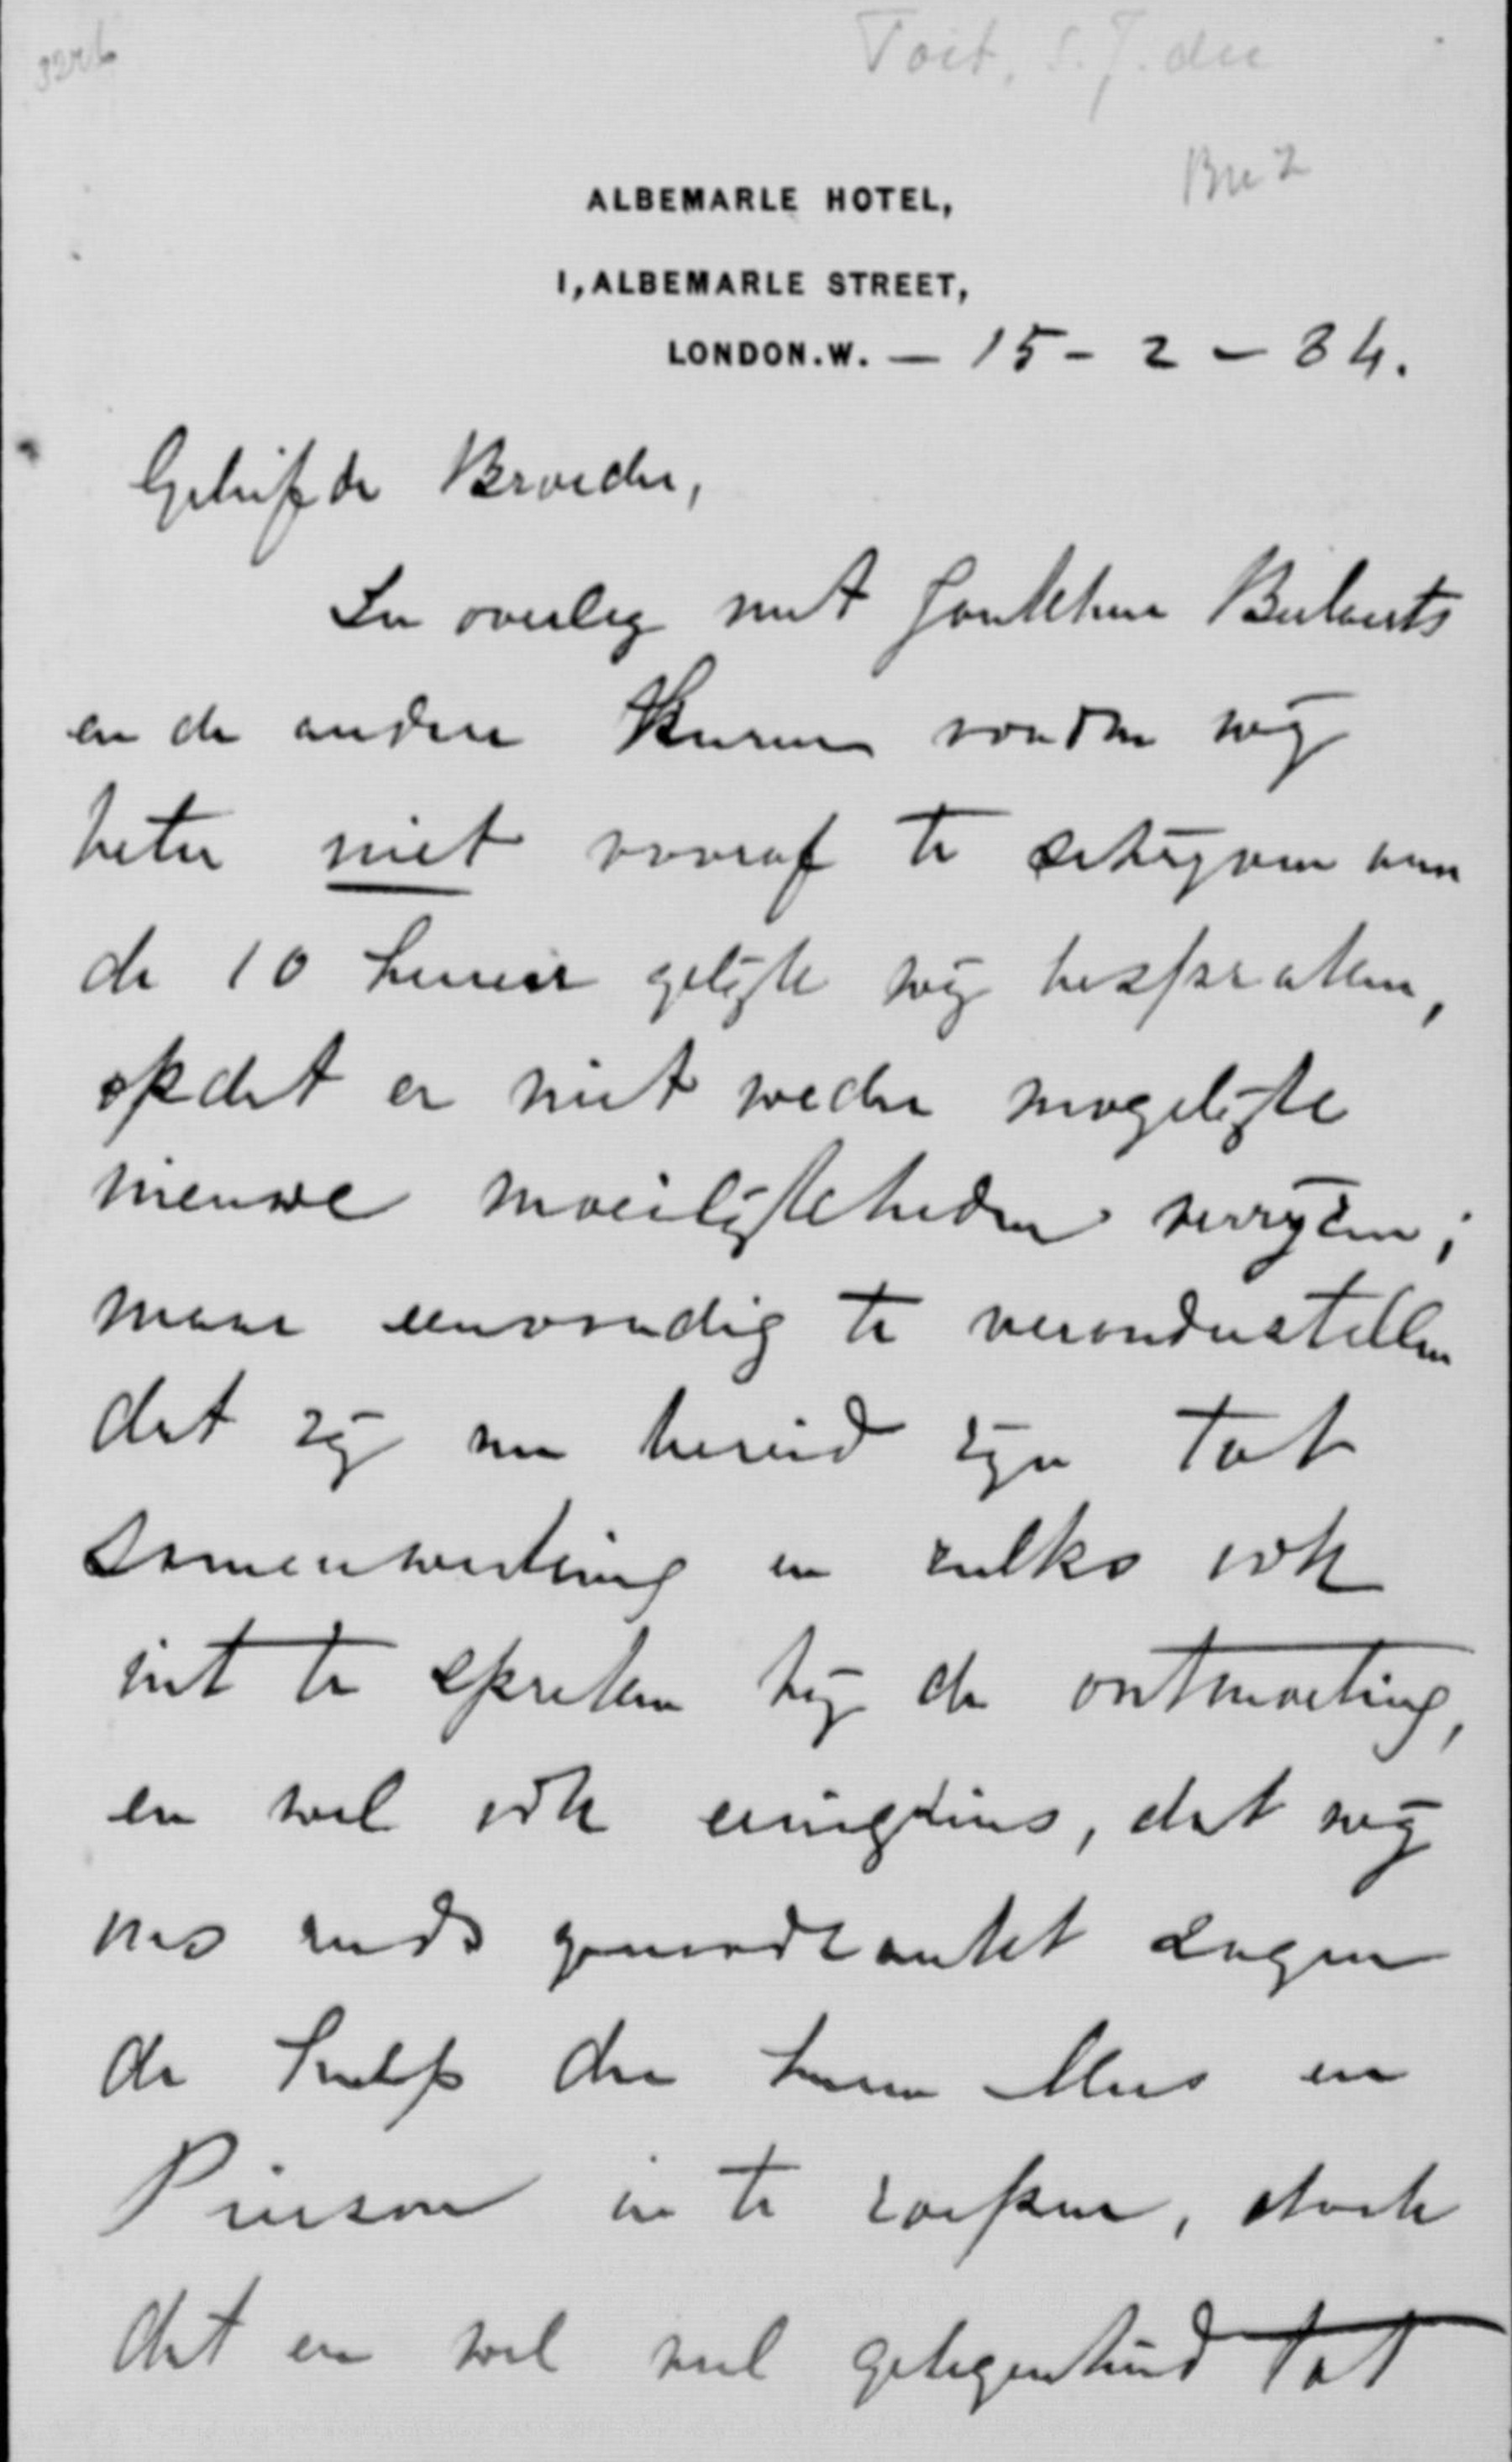 Toit, S. J. du
ALBEMARLE HOTEL,
1, ALBEMARLE STREET,
LONDON. W. — 15 - 2 - 84.
Geliefde Broeder,
In overleg met Jonkheer Beelaerts
en de andere Heeren vonden wij
beter niet vooraf te schrijven aan
de 10 heeren gelijk wij bespraken,
opdat er niet weder mogelijke
nieuwe moeilijkheden verrijzen;
maar eenvoudig te veronderstellen
dat zij nu bereid zijn tot
samenwerking en zulks ook
uit te spreken bij de ontmoeting,
en wel ook eenigzins, dat wij
ons genoodzaakt zagen
de hulp der heeren Mees en
Pierson in te roepen, doch
dat er wel veel gelegenheid tot